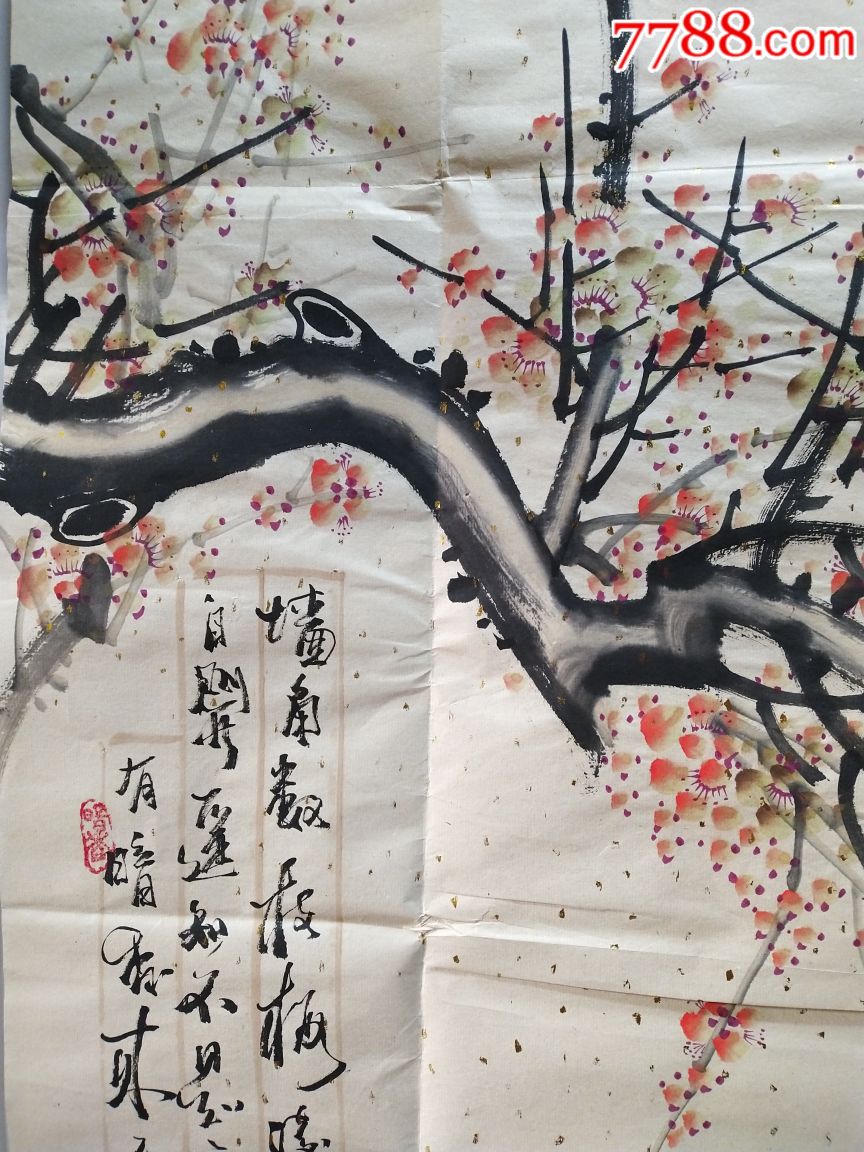 7788.com
墙角数枝梅
自開 遥知不是
有暗香来
暗香